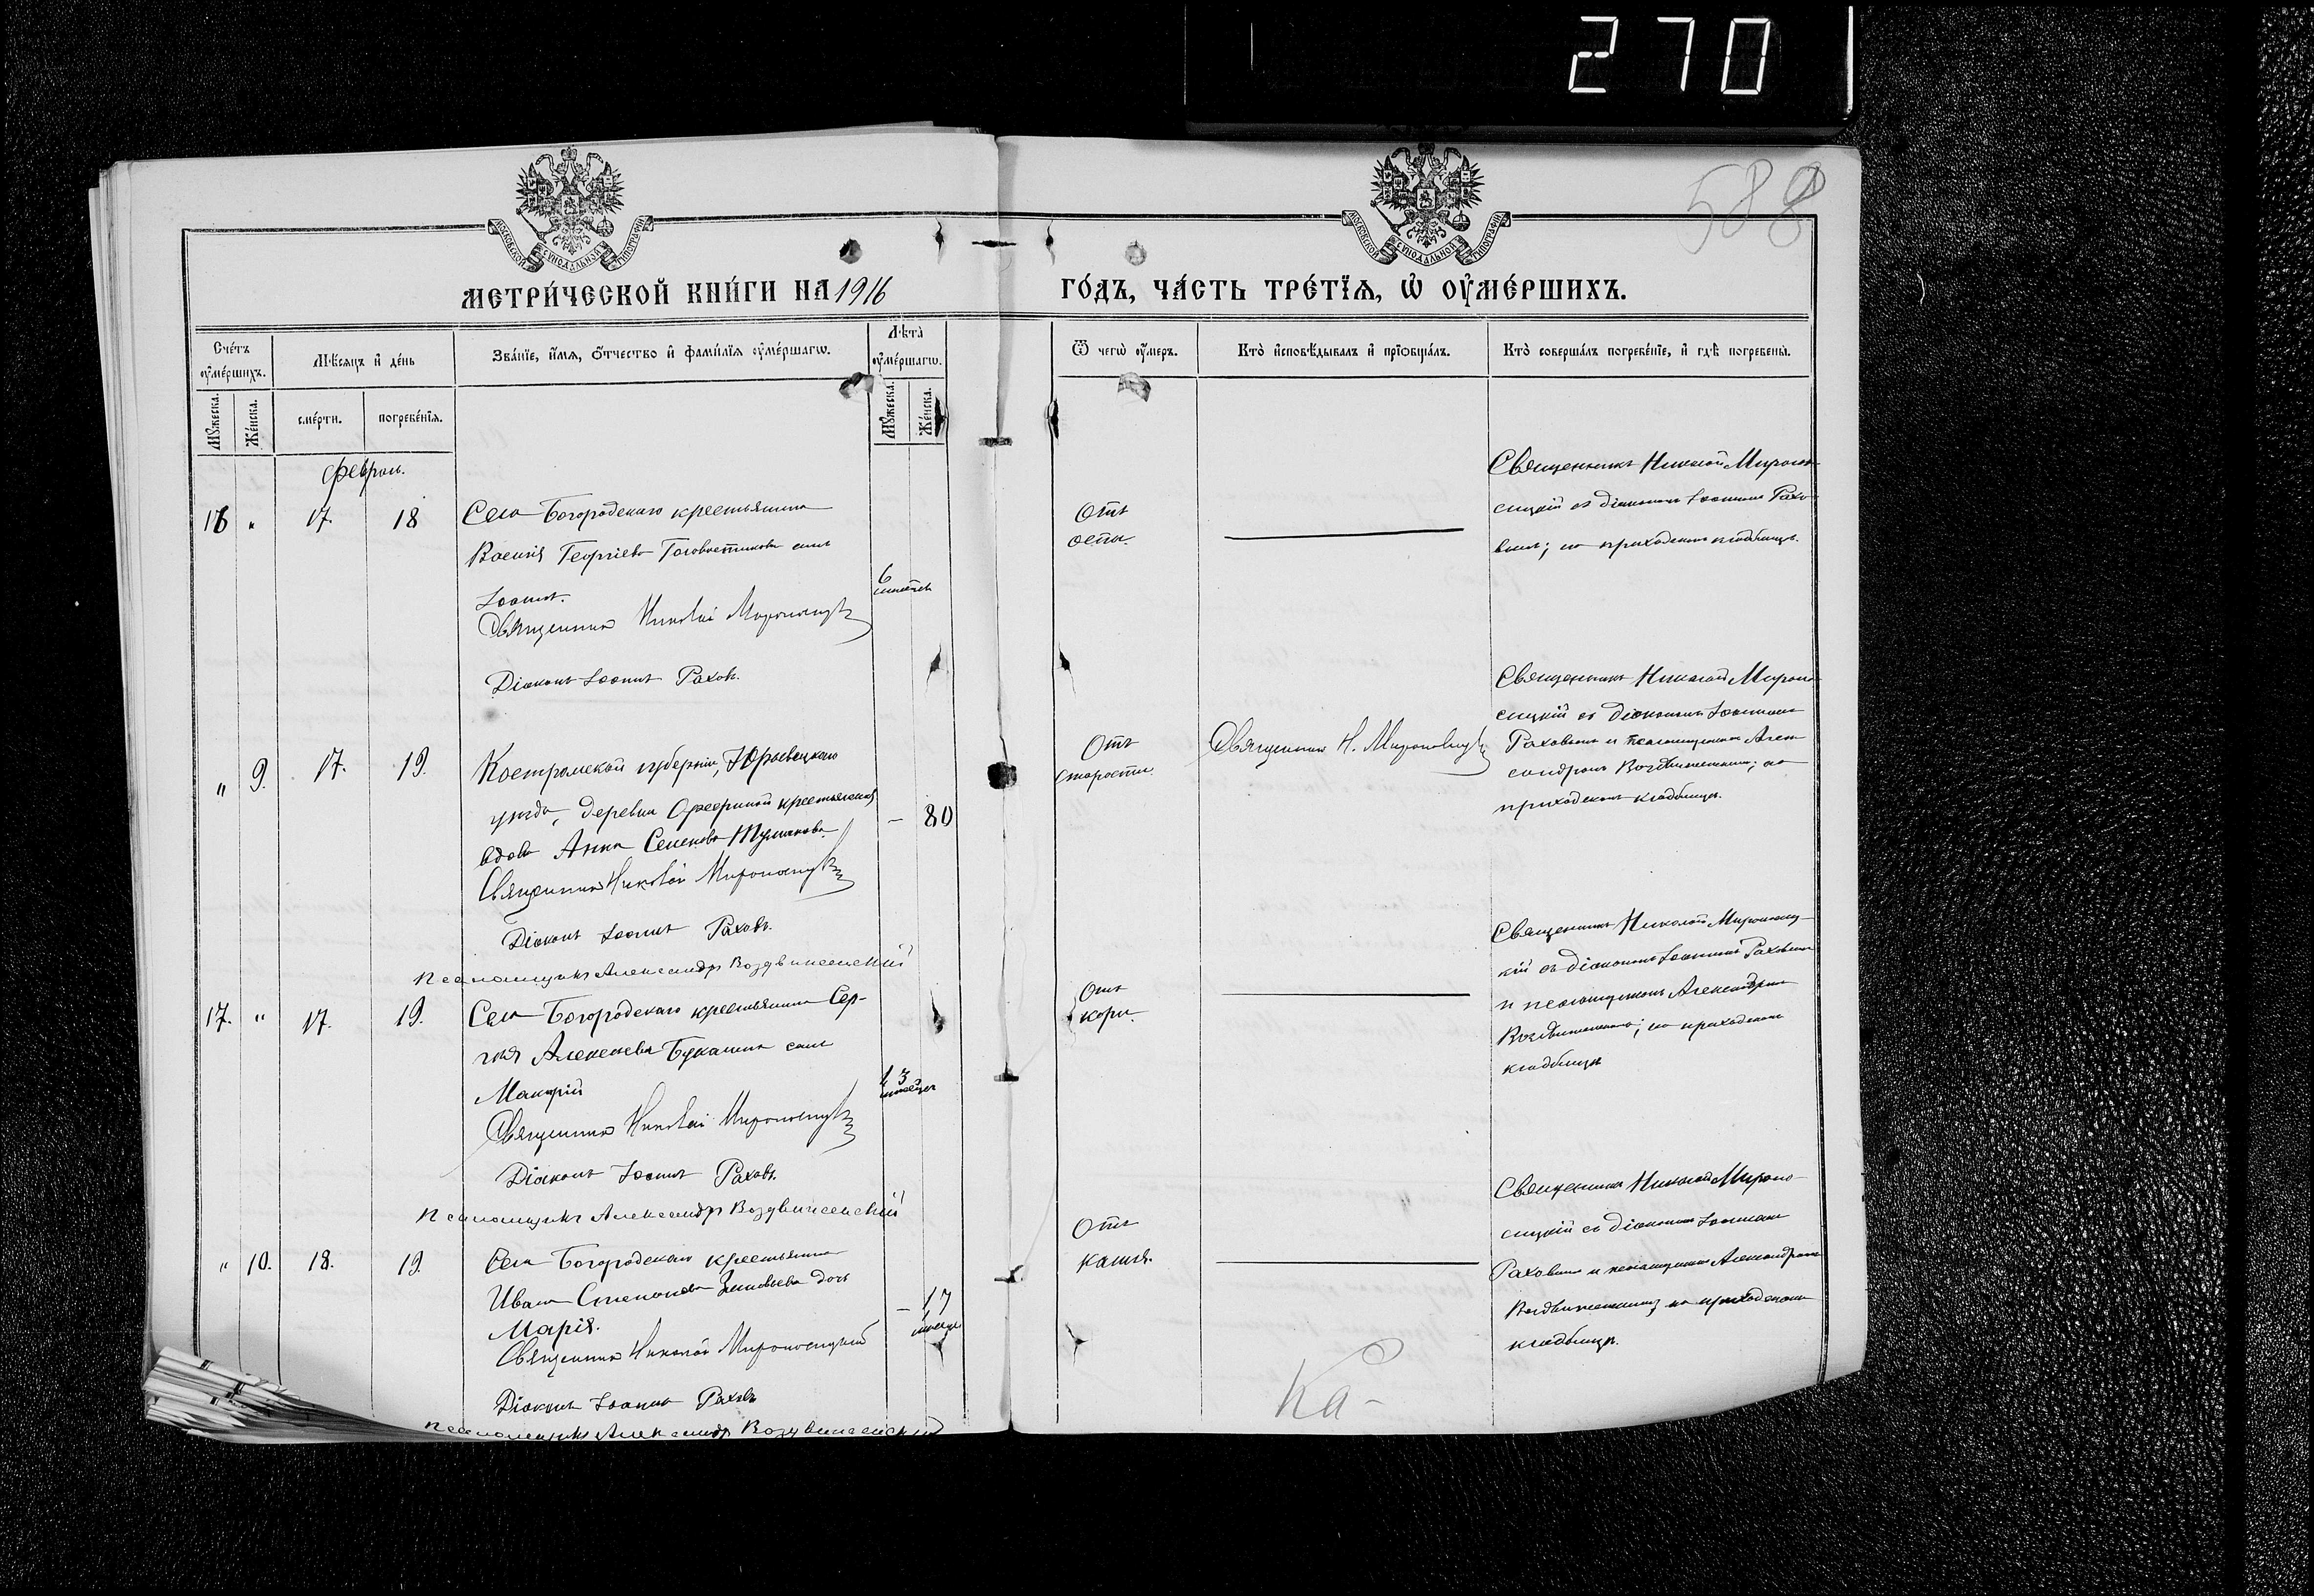 270
588
МОСКОВСКОЙ СѴНОДАЛЬНОЙ ТИПОГРАФІИ
МОСКОВСКОЙ СѴНОДАЛЬНОЙ ТИПОГРАФІИ
МЕТРИ́ЧЕСКОЙ КНИ́ГИ НА 1916
ГО́ДЪ, ЧА́СТЬ ТРЕ́ТЇѦ, Ѡ ОУ҆МЕ́РШИХЪ.
Сче́тъ оу҆ме́ршихъ.
Мѣ́сяцъ и҆ де́нь
Зва́нїе, и҆́мѧ, ѻ҆́тчество и҆ фами́лїѧ оу҆ме́ршагѡ.
Лѣта̀ оу҆ме́ршагѡ.
Ѿ чегѡ̀ оу҆́меръ.
Кто̀ и҆сповѣ́дывалъ и҆ прїѡбща́лъ.
Кто̀ соверша́лъ погребе́нїе, и҆ гдѣ̀ погребены̀.
Мꙋ́жеска.
Же́нска.
сме́рти.
погребе́нїѧ.
Мꙋ́жеска.
Же́нска.
Феврал.
16 " 17. 18
Села Богородскаго крестьянина
Василія Георгіева сынъ
Іоаннъ.
6
Священникъ Николай Мироносицкій
Діаконъ Іоаннъ Раховъ.
Отъ
оспы.
Священникъ Николай Мироно-
сицкій съ діакономъ Іоанномъ Рахо-
вымъ; на приходскомъ кладбищѣ.
" 9. 17. 19.
Костромской губерніи, Юрьевецкаго
уѣзда, деревни крестьянская
вдова Анна Семенова Туманова
– 80
Священникъ Николай Мироносицкій
Діаконъ Іоаннъ Раховъ.
Псаломщикъ Александръ Воздвиженскій
Отъ
старости.
Священникъ Н. Мироносицкій
Священникъ Николай Мироно-
сицкій съ діакономъ Іоанномъ
Раховымъ и псаломщикомъ Алек-
сандромъ Воздвиженскимъ; на
приходскомъ кладбищѣ.
17. " 17. 19.
Села Богородскаго крестьянина Сер-
гія Алексѣева Букашина сынъ
Макарій
Священникъ Николай Мироносицкій
Діаконъ Іоаннъ Раховъ.
Псаломщикъ Александръ Воздвиженскій
Отъ
кори.
Священникъ Николай Мироносиц-
кій съ діакономъ Іоанномъ Раховымъ
и псаломщикомъ Александромъ
Воздвиженскимъ; на приходскомъ
кладбищѣ
" 10. 18. 19.
Села Богородскаго крестьянина
Ивана Степанова Зиновьева дочь
Марія.
– 17
Священникъ Николай Мироносицкій
Діаконъ Іоаннъ Раховъ
Псаломщикъ Александръ Воздвиженскій
Отъ
кашля.
Священникъ Николай Мироно-
сицкій съ діакономъ Іоанномъ
Раховымъ и псаломщикомъ Александромъ
Воздвиженскимъ; на приходскомъ
кладбищѣ.
Ка-